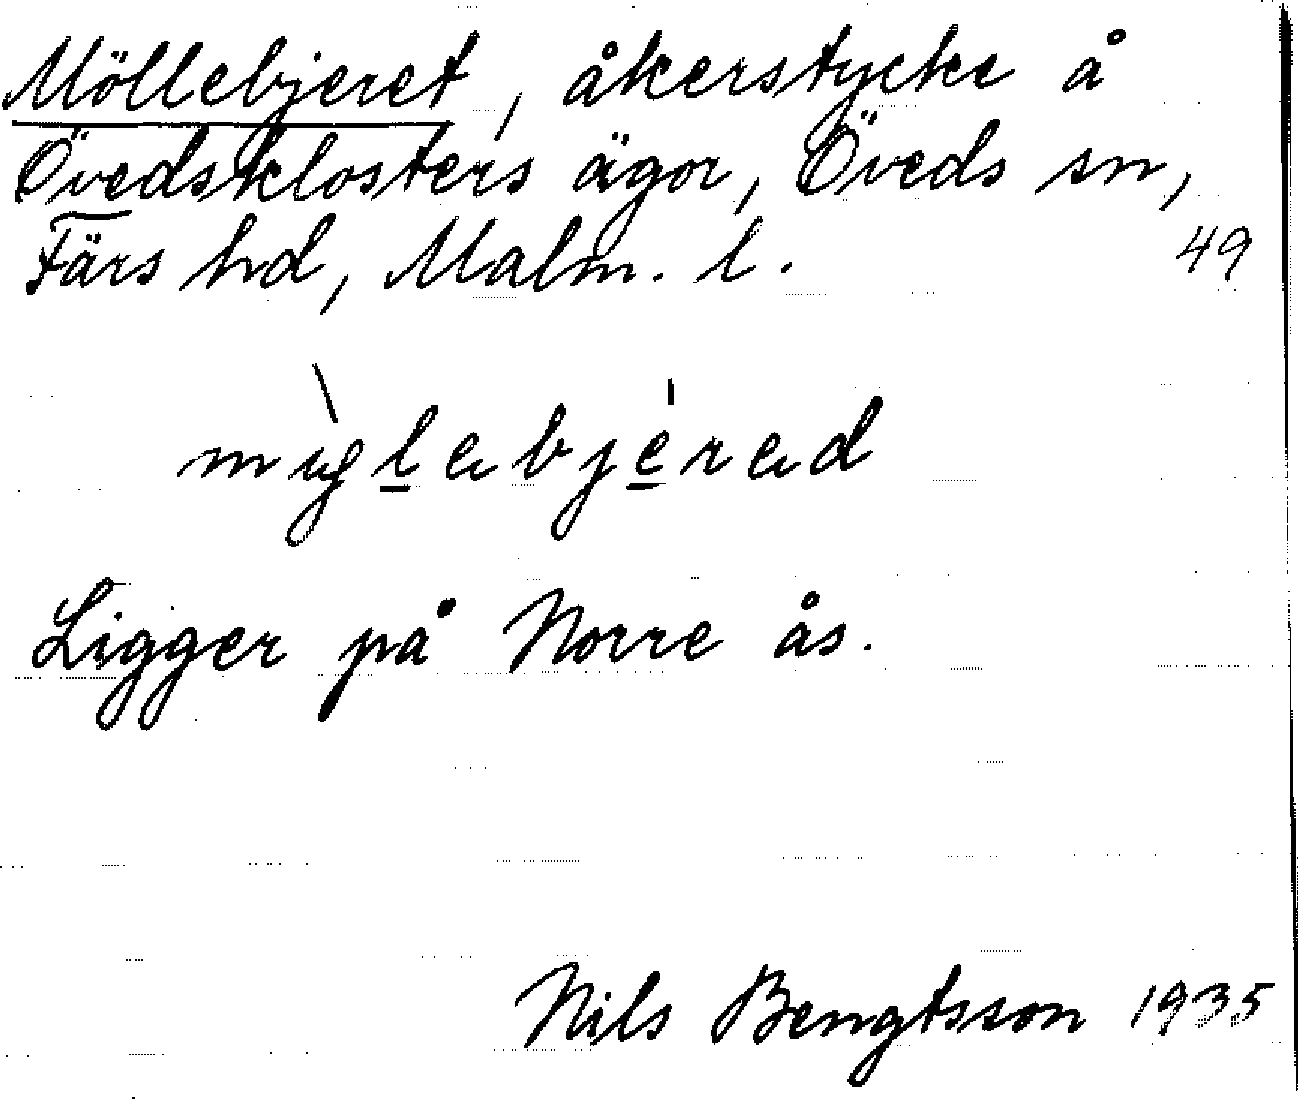 Möllebjeret, åkerstycke å
Övedsklosters ägor, Öveds sn,
Färs hd, Malm. l.
49
Ligger på Norre ås.
Nils Bengtsson 1935